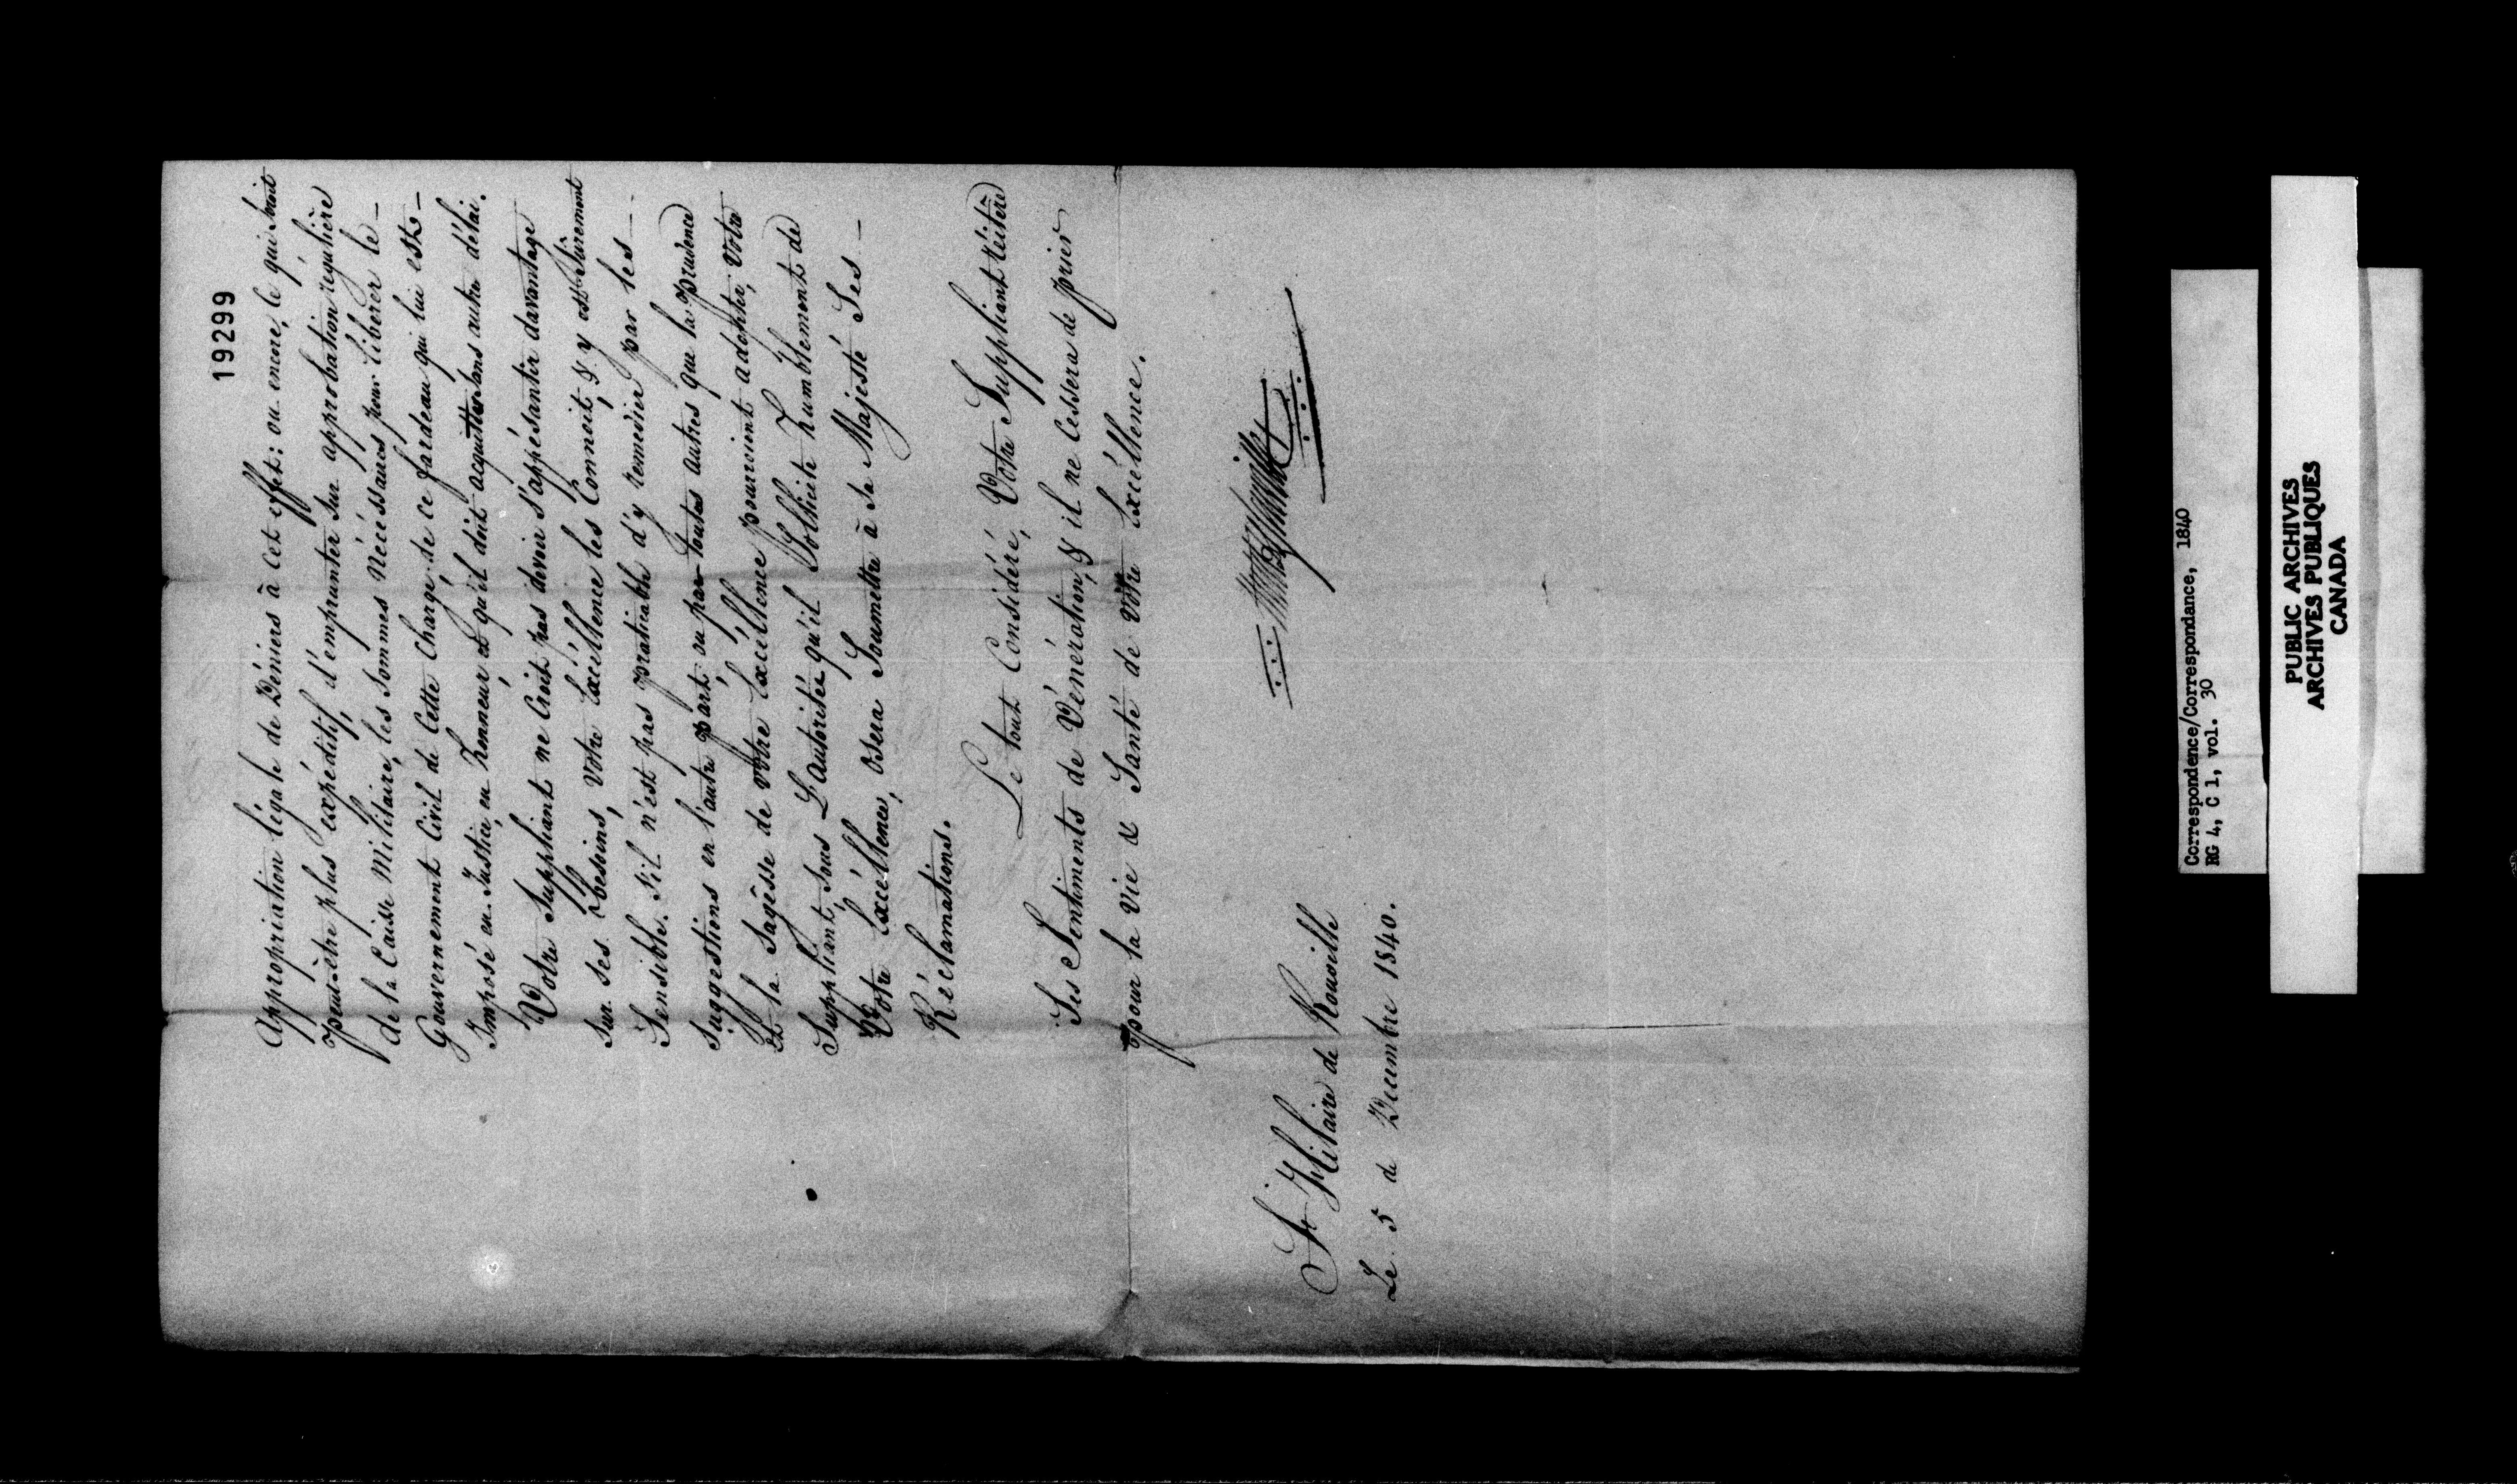 19299
Appropriation légale de Déniers à Cet effet: ou encore, le qui Seroit
peut-être plus expéditif, d'emprunter Sur approbation régulière
de la Caisse Militaire, les Sommes Nécéssaires pour libérer le
Gouvernement Civil de Cette Charge, de ce fardeau qui lui est
Imposé en Justice, en honneur et qu'il doit acquitter sans autre délai.
Votre Suppliant ne Croit pas devoir s'appésantir davantage
Sur Ses besoins, Votre Excéllence les Connoit, & y est Sûrement
Sensible. S'il n'est pas praticable d'y remédier par les
Suggestions en l'autre part, ou par toutes autres que la Prudence
Et la Sagésse de Votre Excéllence pourroient adopter, Votre
Suppliant, Sous L'autorité qu'il Sollicite humblement de
Votre Excéllence, osera Soumettre à Sa Majesté Ses
Réclamations.
Le tout Considéré, Votre Suppliant réitère
Ses Sentiments de Vénération, & il ne Cessera de prier
pour la Vie & Santé de Votre Excéllence.
St Hilaire de Rouville
Le 5 de Décembre 1840.
Correspondence/Correspondance, 1840
RG 4, C 1, vol. 30
PUBLIC ARCHIVES
ARCHIVES PUBLIQUES
CANADA